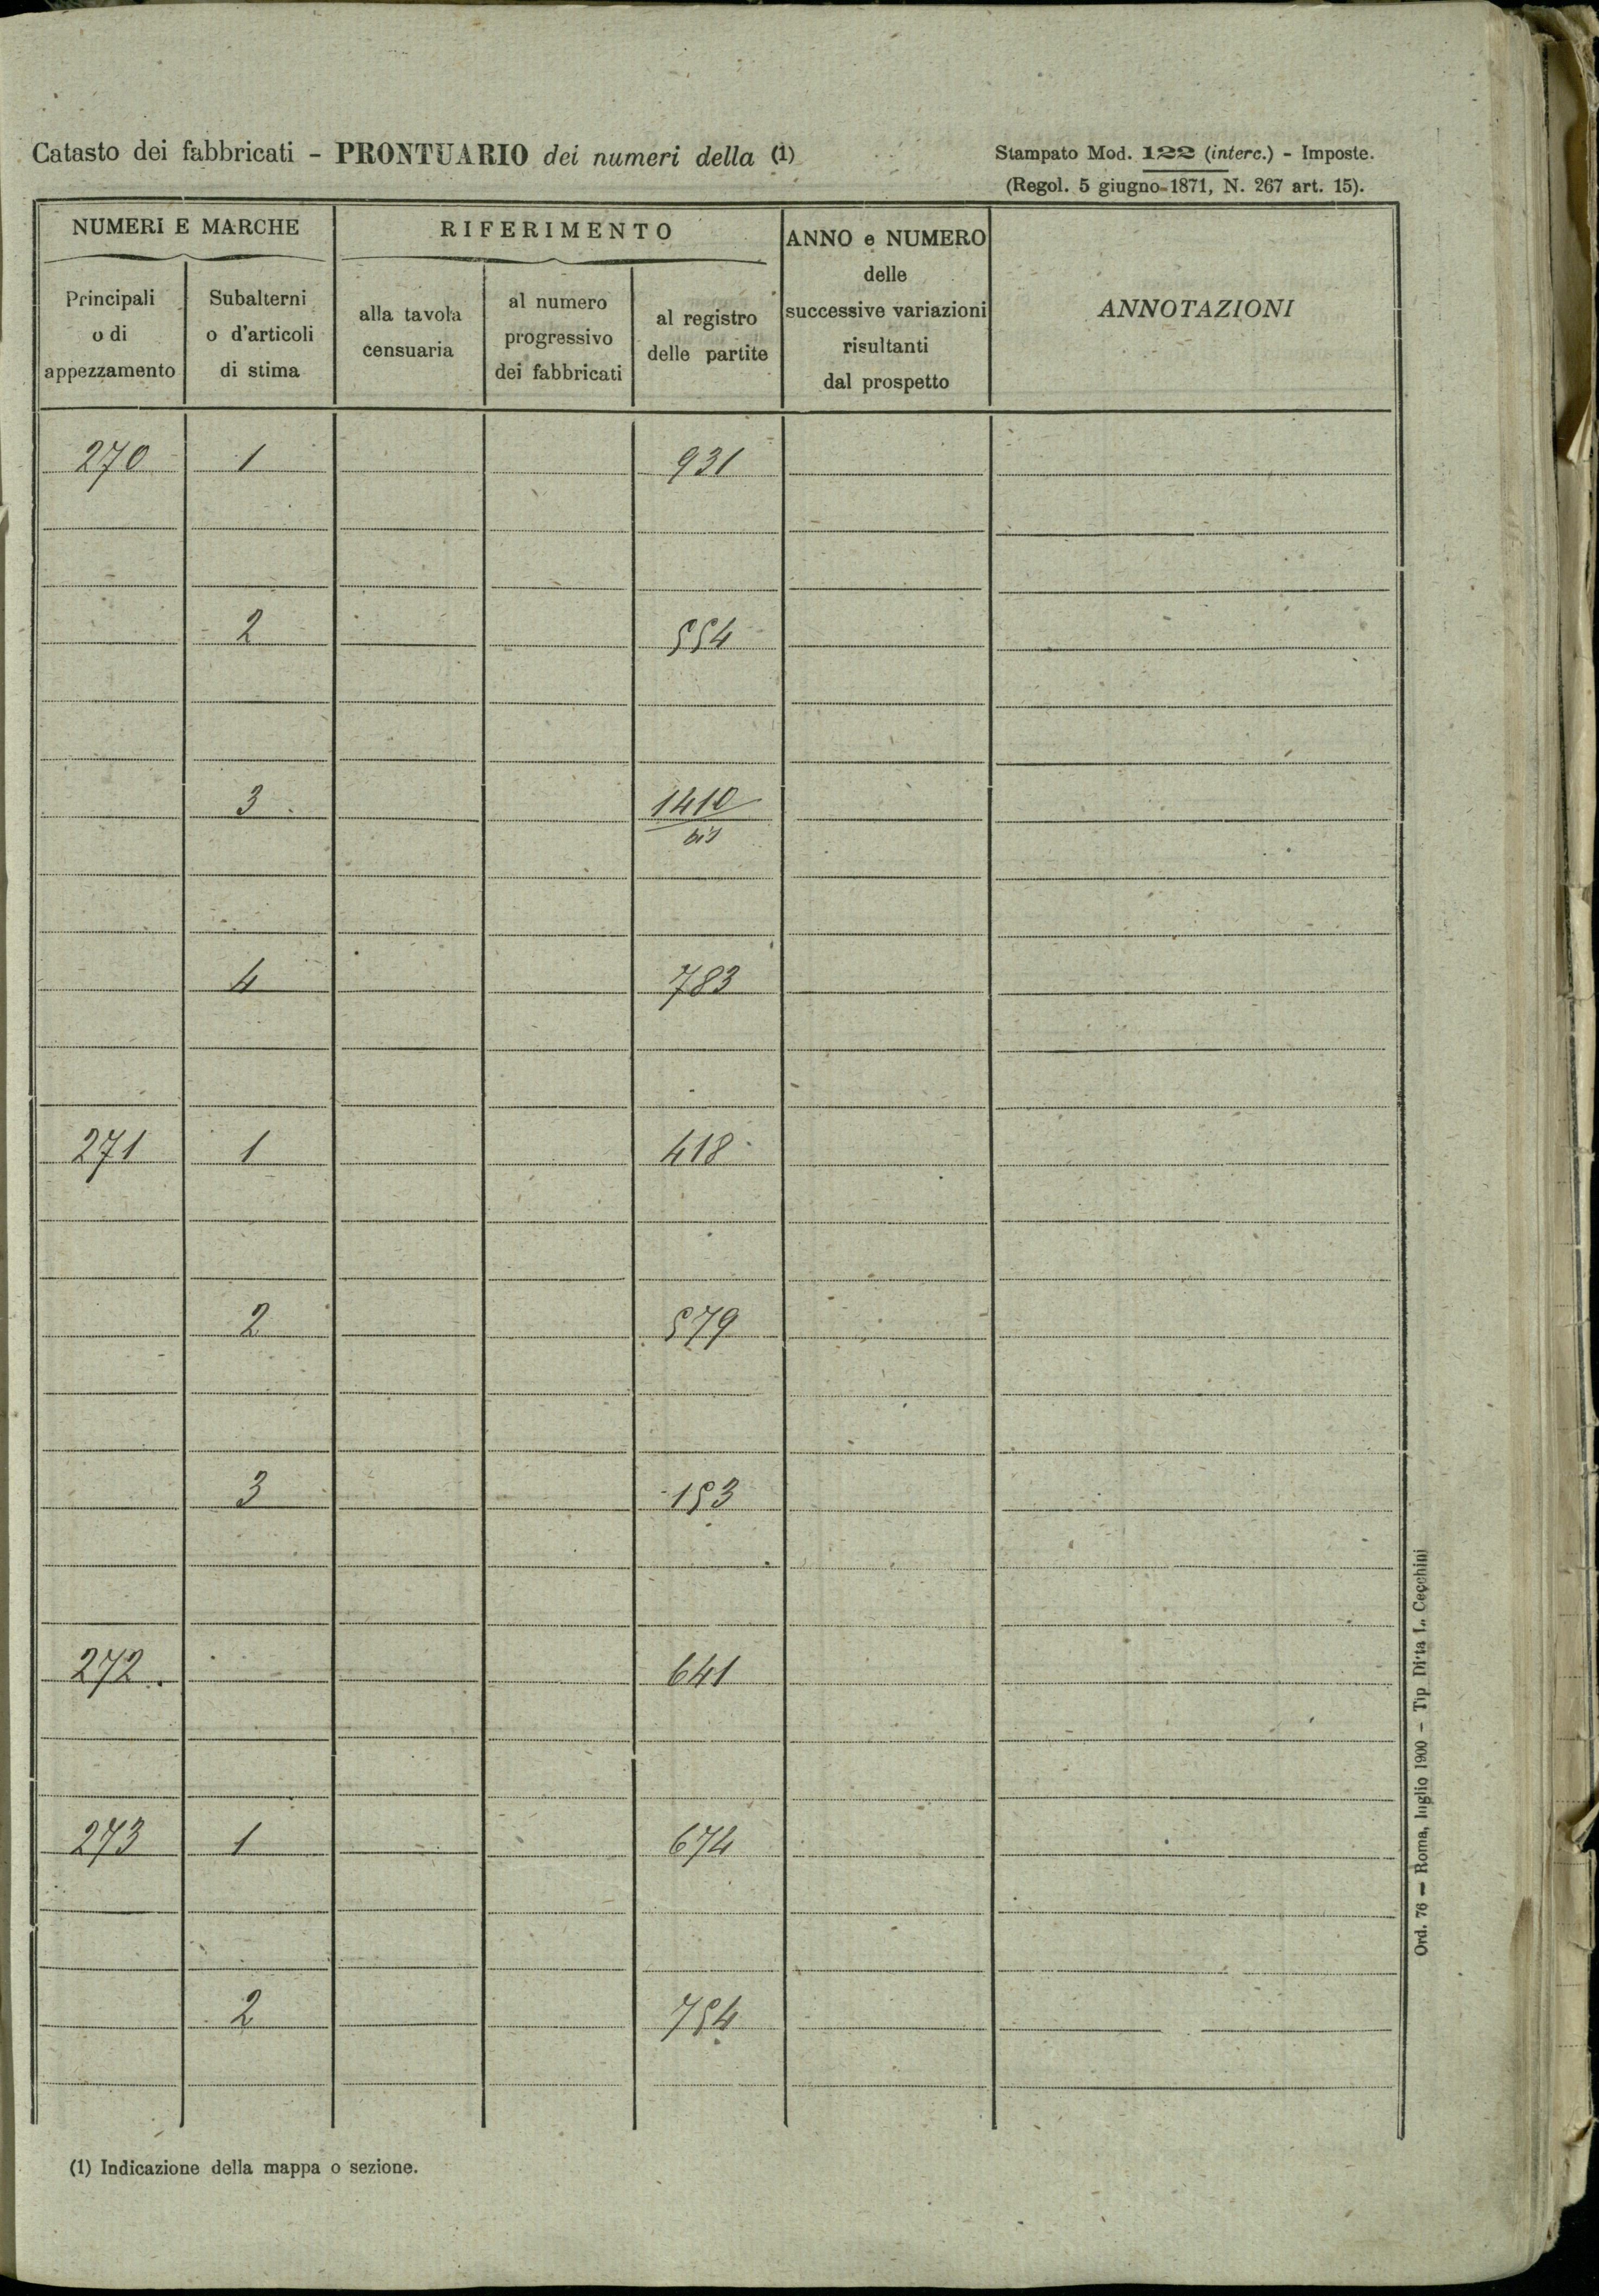 Catasto dei fabbricati - PRONTUARIO dei numeri della (1)
Stampato Mod. 122 (interc.) - Imposte.
(Regol. 5 giugno 1871, N. 267 art. 15).
NUMERI E MARCHE
RIFERIMENTO
ANNO e NUMERO
delle
successive variazioni
risultanti
dal prospetto
ANNOTAZIONI
Principali
o di
appezzamento
Subalterni
o d'articoli
di stima
alla tavola
censuaria
al numero
progressivo
dei fabbricati
al registro
delle partite
270 1 931
2 554
3 1410
bis
4 783
271 1 418
2 579
3 153
272 641
273 1 674
2 754
(1) Indicazione della mappa o sezione.
Ord. 76 — Roma, luglio 1900 - Tip Ditta L. Cecchini